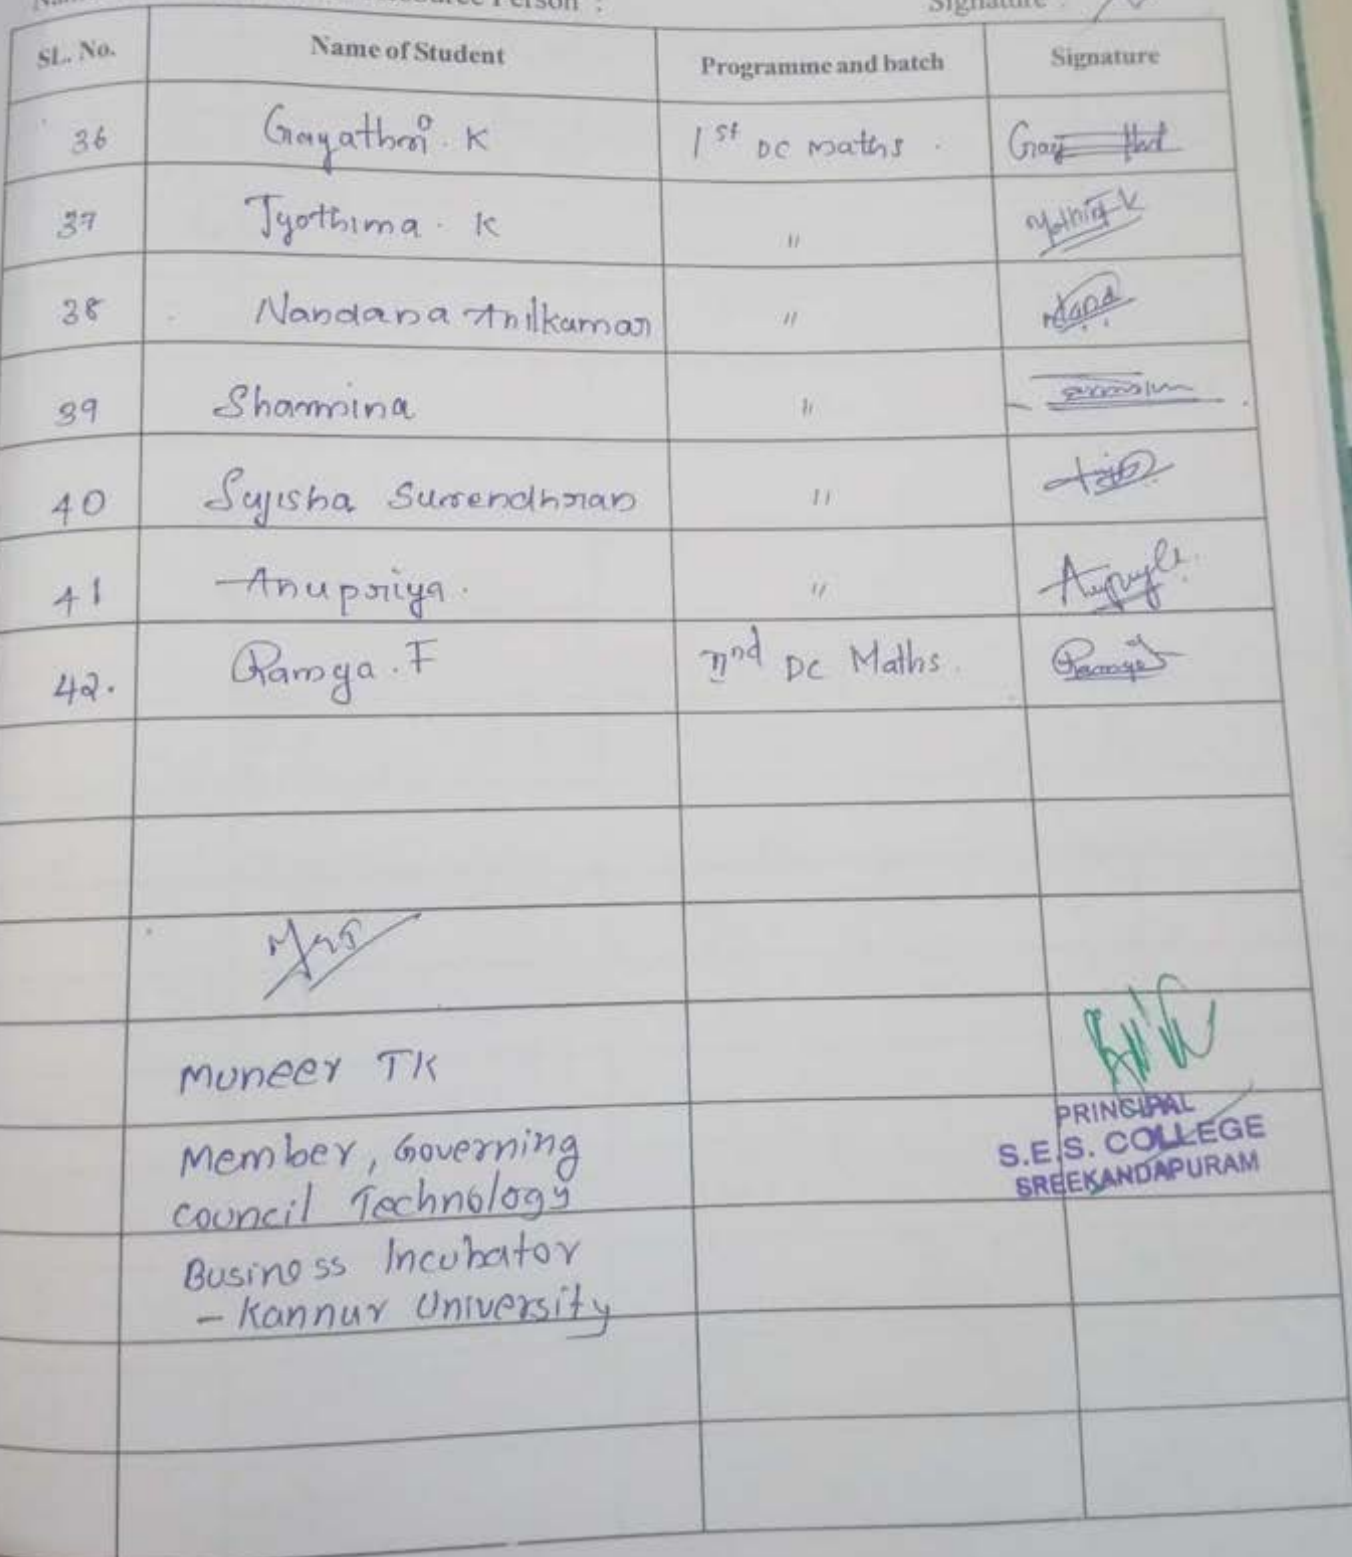 Person :
Signature :
SL. No. Name of Student Programme and batch Signature
36 Gayathri. K 1st DC maths.
37 Jyothima. K "
38 Nandana Anilkumar "
39 Shamina "
40 Sujisha Surendhran "
41 Anupriya. "
42. Ramya. F IInd DC Maths.
Muneer TK
Member, Governing
council Technology
Business Incubator
- Kannur University
PRINCIPAL
S.E.S. COLLEGE
SREEKANDAPURAM